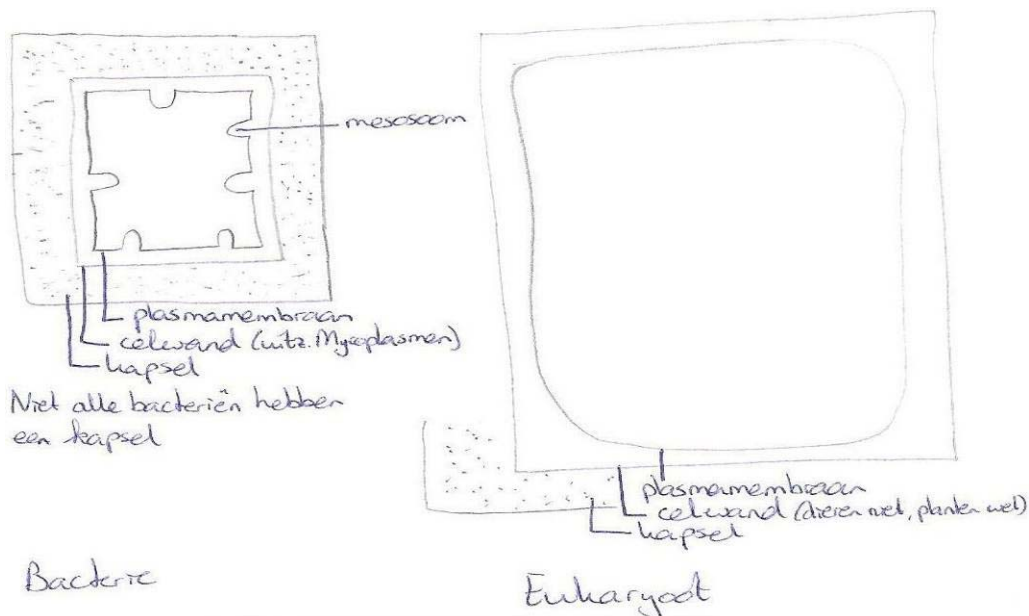 mesosoom
plasmamembraan
celwand (uitz. Mycoplasmen)
kapsel
Niet alle bacteriën hebben
een kapsel
Bacterie
plasmamembraan
celwand (dieren niet, planten wel)
kapsel
Eukaryoot